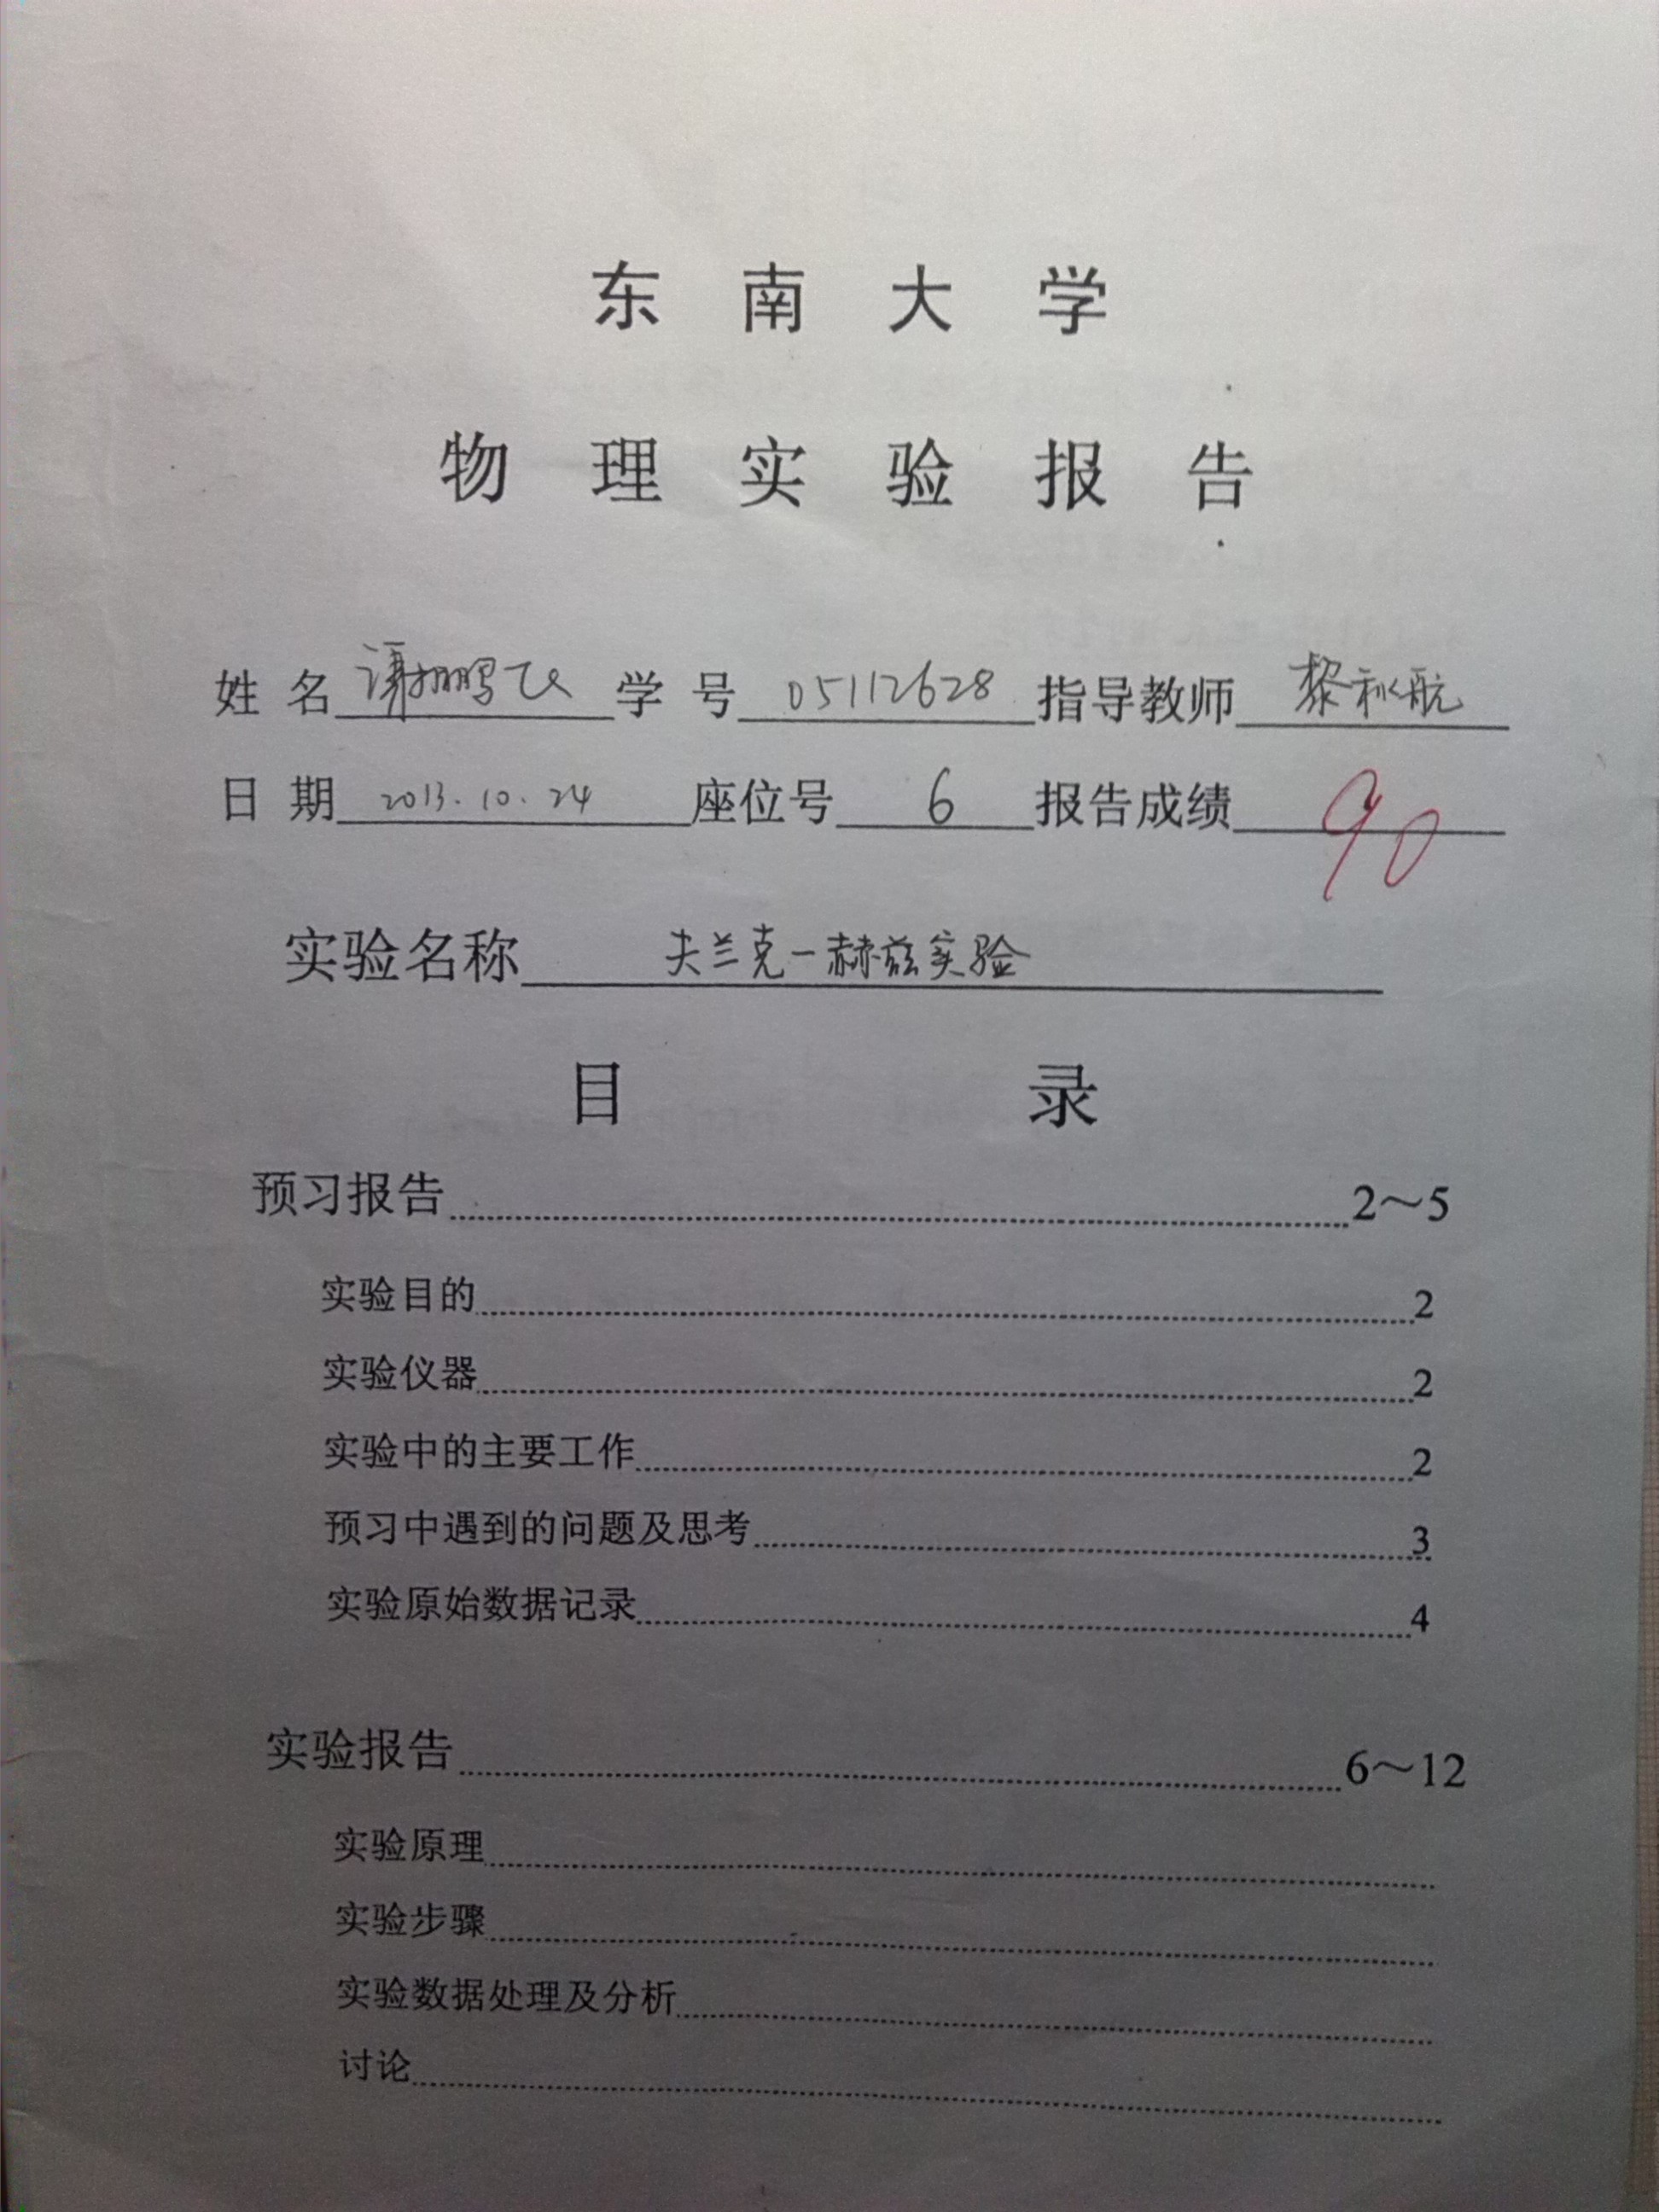 东南大学
物理实验报告
姓名 谢鹏飞 学号 05112628 指导教师 黎秋航
日期 2013.10.24 座位号 6 报告成绩 90
实验名称 夫兰克-赫兹实验
目录
预习报告 2～5
实验目的 2
实验仪器 2
实验中的主要工作 2
预习中遇到的问题及思考 3
实验原始数据记录 4
实验报告 6～12
实验原理
实验步骤
实验数据处理及分析
讨论